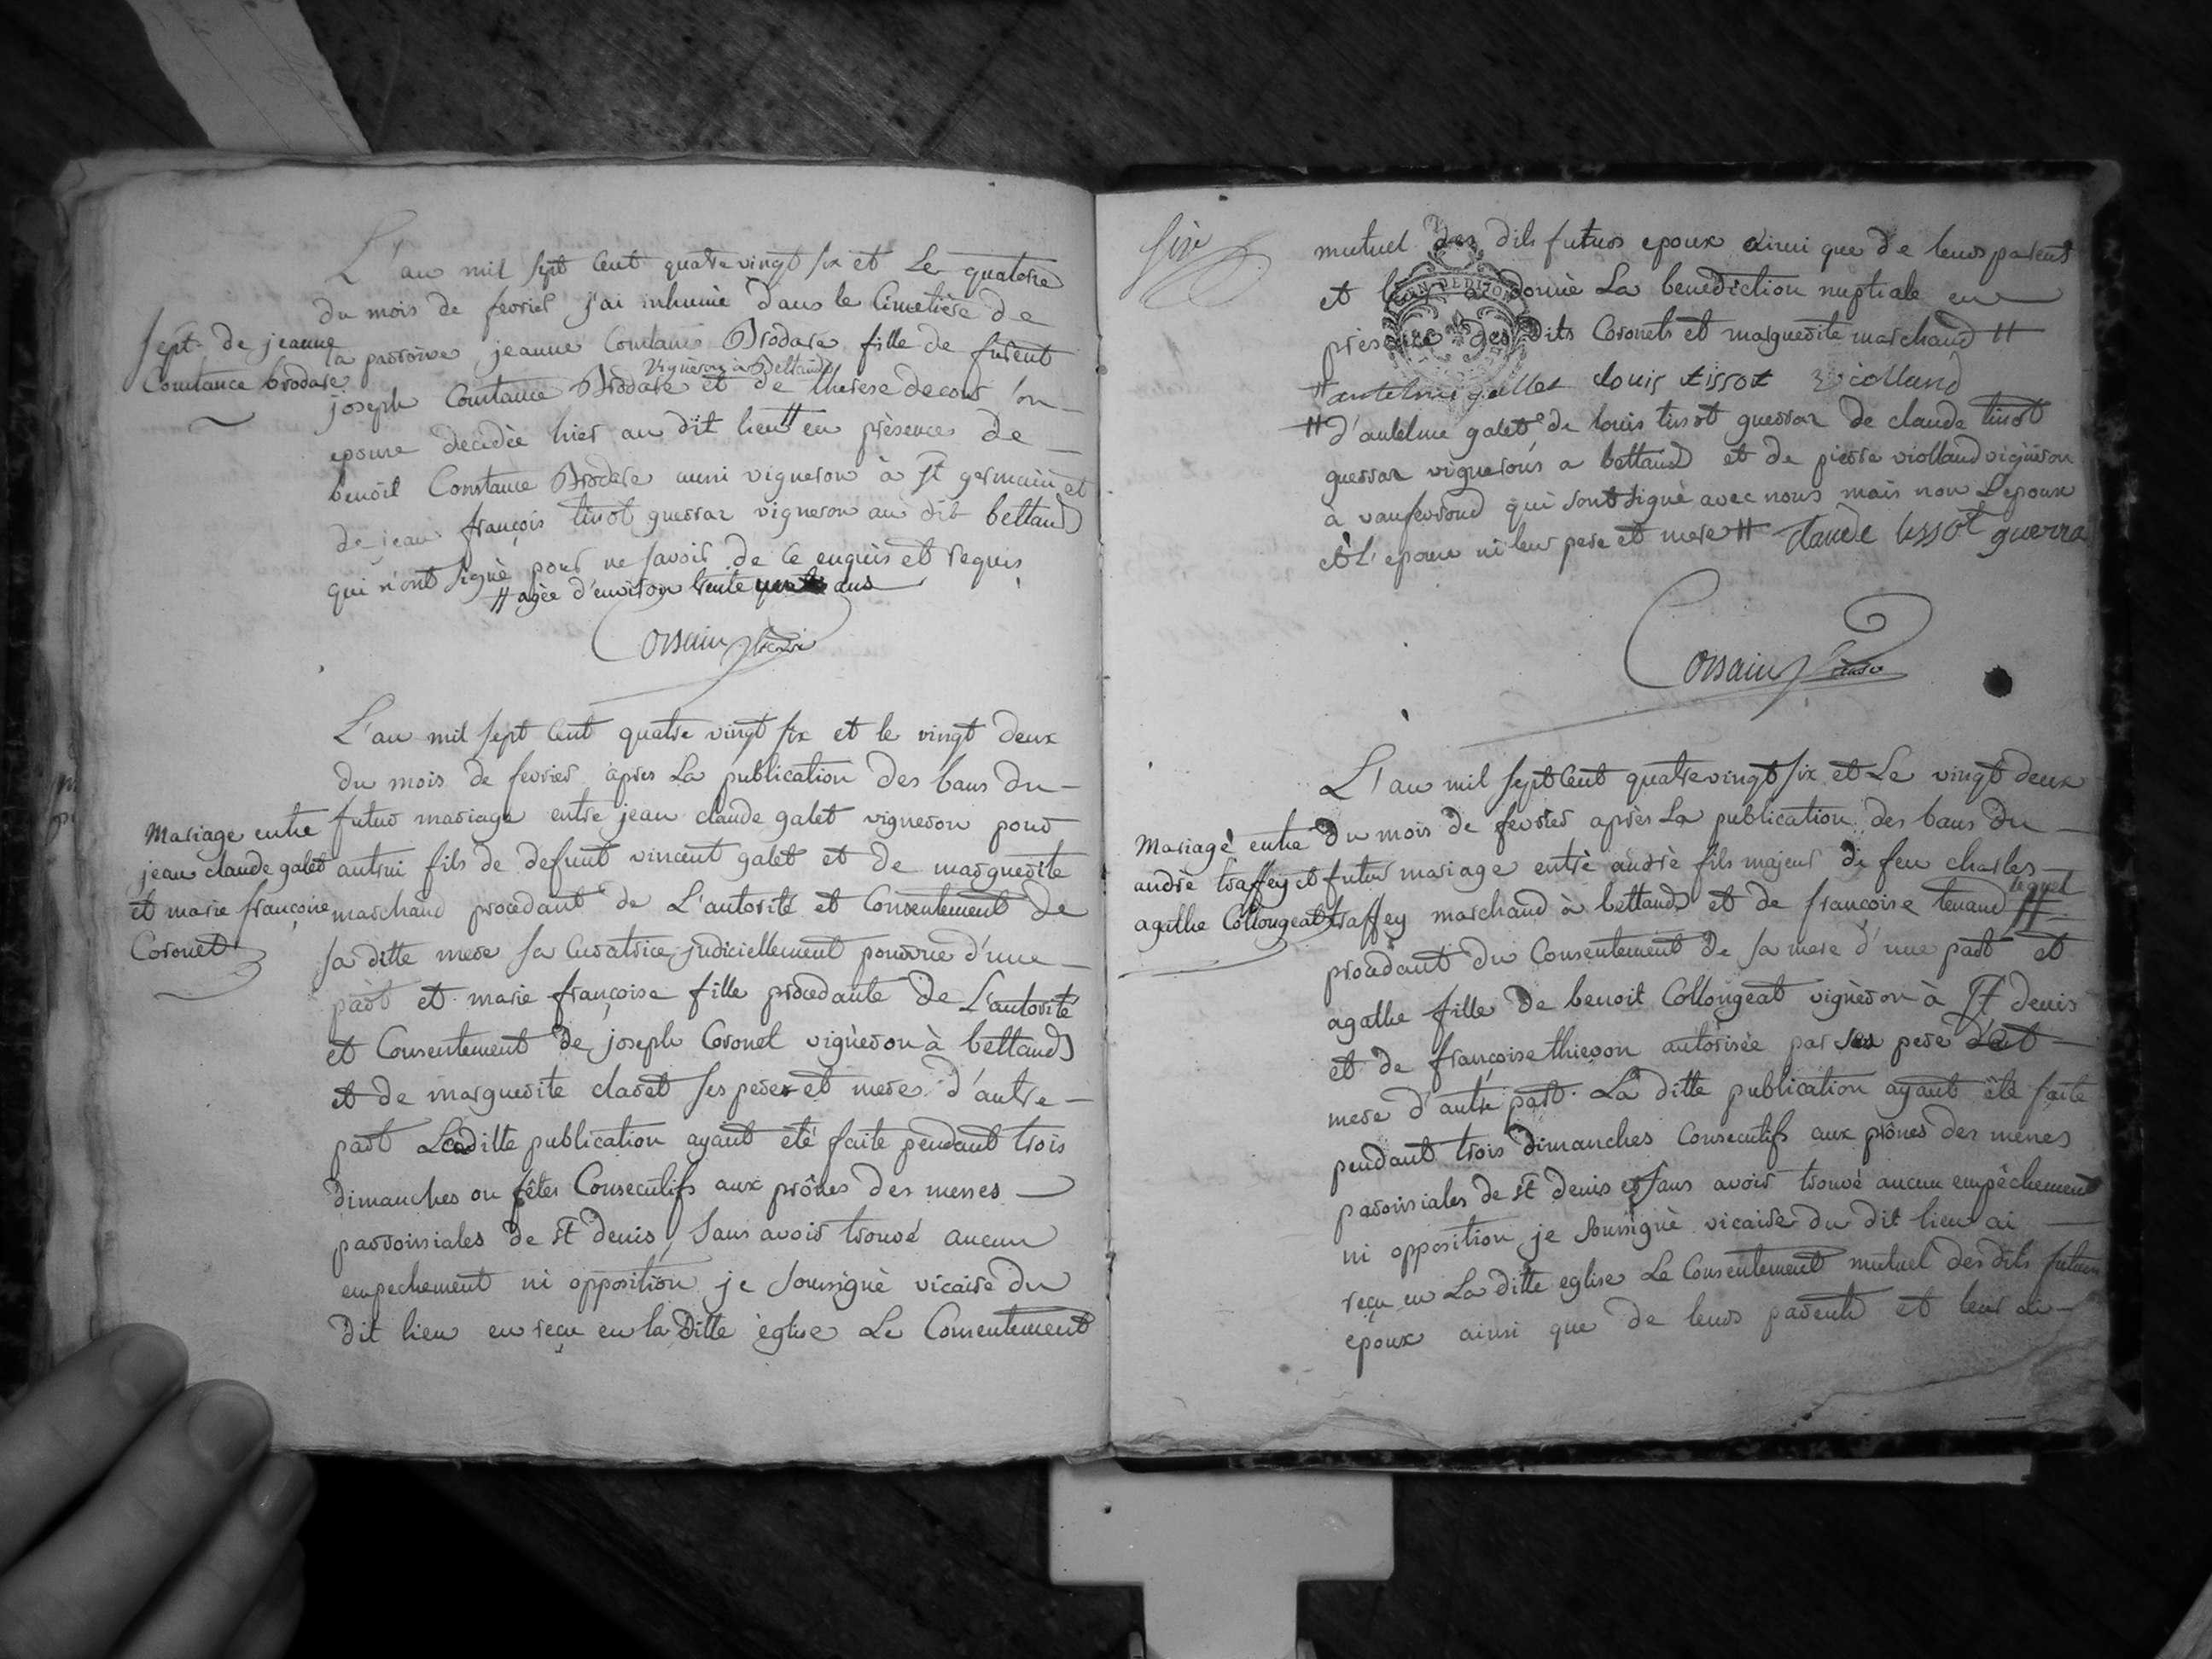 L'an mil sept cent quatre vingt six et Le quatorze
du mois de fevrier j'ai inhumé dans le Cimetière de
sept. de jeanne
Constance brodare
la parroisse jeanne Constance Brodare fille de furent
vigneron à Bettand
joseph Constance Brodare et de therese decors son
epouse decedée hier au dit lieu # en présence de
benoit Constance Brodare aussi vigneron à St germain et
de jean françois tissot guerraz vigneron au dit bettand
qui n'ont signé pour ne savoir de ce enquis et requis
# agée d'environ trente ans
Corsain vicaire
L'an mil sept cent quatre vingt six et le vingt deux
du mois de fevrier après La publication des bans du
Mariage entre
jean claude galet
et marie françoise
Coronet
futur mariage entre jean claude galet vigneron pour
autrui fils de defunt vincent galet et de marguerite
marchand procedant de L'autorité et Consentement de
sa ditte mere sa Curatrice judiciellement pourvue d'une
part et marie françoise fille procedante de L'autorité
et Consentement de joseph Coronet vigneron à bettand
et de marguerite claret ses peres et meres d'autre
part La ditte publication ayant été faite pendant trois
dimanches ou fêtes Consecutifs aux prônes des messes
parroissiales de St denis, Sans avoir trouvé aucun
empechement ni opposition je soussigné vicaire du
dit lieu en reçu en la ditte église Le Consentement
six
mutuel des dits futurs epoux ainsi que de leurs parents
et leur ai donné La benediction nuptiale en
présence des dits Coronets et marguerite marchand #
# antelme gallet louis tissot violland
# d'antelme galet de louis tissot guerraz de claude tissot
guerraz vignerons a bettand et de pierre violland vigneron
à vaufevroud qui sont signé avec nous mais non L'epoux
et L'epouse ni leur pere et mere # claude tissot guerra
Corsain vicaire
L'an mil sept Cent quatre vingt six et Le vingt deux
Mariage entre
andrè traffey et
agathe Collongeat
du mois de fevrier après La publication des bans du
futur mariage entre andrè fils majeur de feu charles
traffey marchand à bettand et de françoise tenand #
lequel
procedant du Consentement de sa mere d'une part et
agathe fille de benoit Collongeat vigneron à St denis
et de françoise thievon autorisée par ses pere et
mere d'autre part. La ditte publication ayant été faite
pendant trois dimanches Consecutifs aux prônes des messes
paroissiales de St denis et sans avoir trouvé aucun empêchement
ni opposition je soussigné vicaire du dit lieu ai
reçu en La ditte eglise Le Consentement mutuel des dits futurs
epoux ainsi que de leurs parents et leur ai